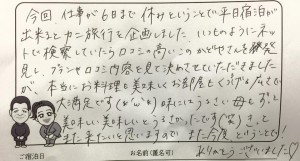 今回 仕事が6日まで休みということで平日宿泊が
出来るとカニ旅行を企画しました。いつものようにネッ
トで検索していたら口コミの高いこのかどやさんを発
見し、プランや口コミ内容を見て決めさせていただきました
が、本当にお料理も美味しくお部屋もくつろげる広さで
大満足です(*^^*) 味にうるさい母もずっと
美味しい美味しいとうるさかったです(笑) きっと
また来たいと思いますので また今度ということで!
ありがとうございました♡
ご宿泊日
お名前(匿名可)